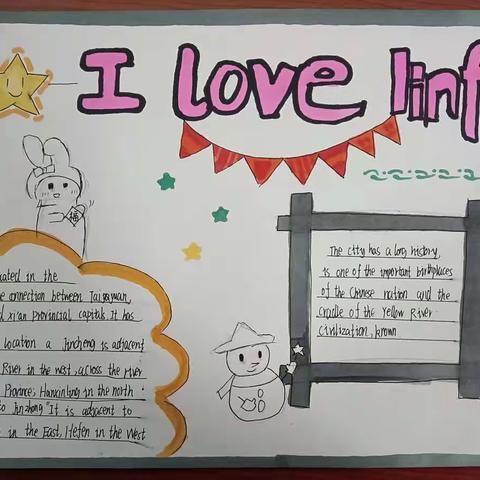 I love linf
福
cated in the
e connection between Taiyuan,
d xi'an provincial capitals. It has
location a Jincheng is adjacent
River in the west, across the river
Province; Hanxinling in the north
to Jinzhong "It is adjacent to
in the East, Hefen in the West
The city has a long history,
is one of the important birthplaces
of the Chinese nation and the
cradle of the Yellow River
civilization, known